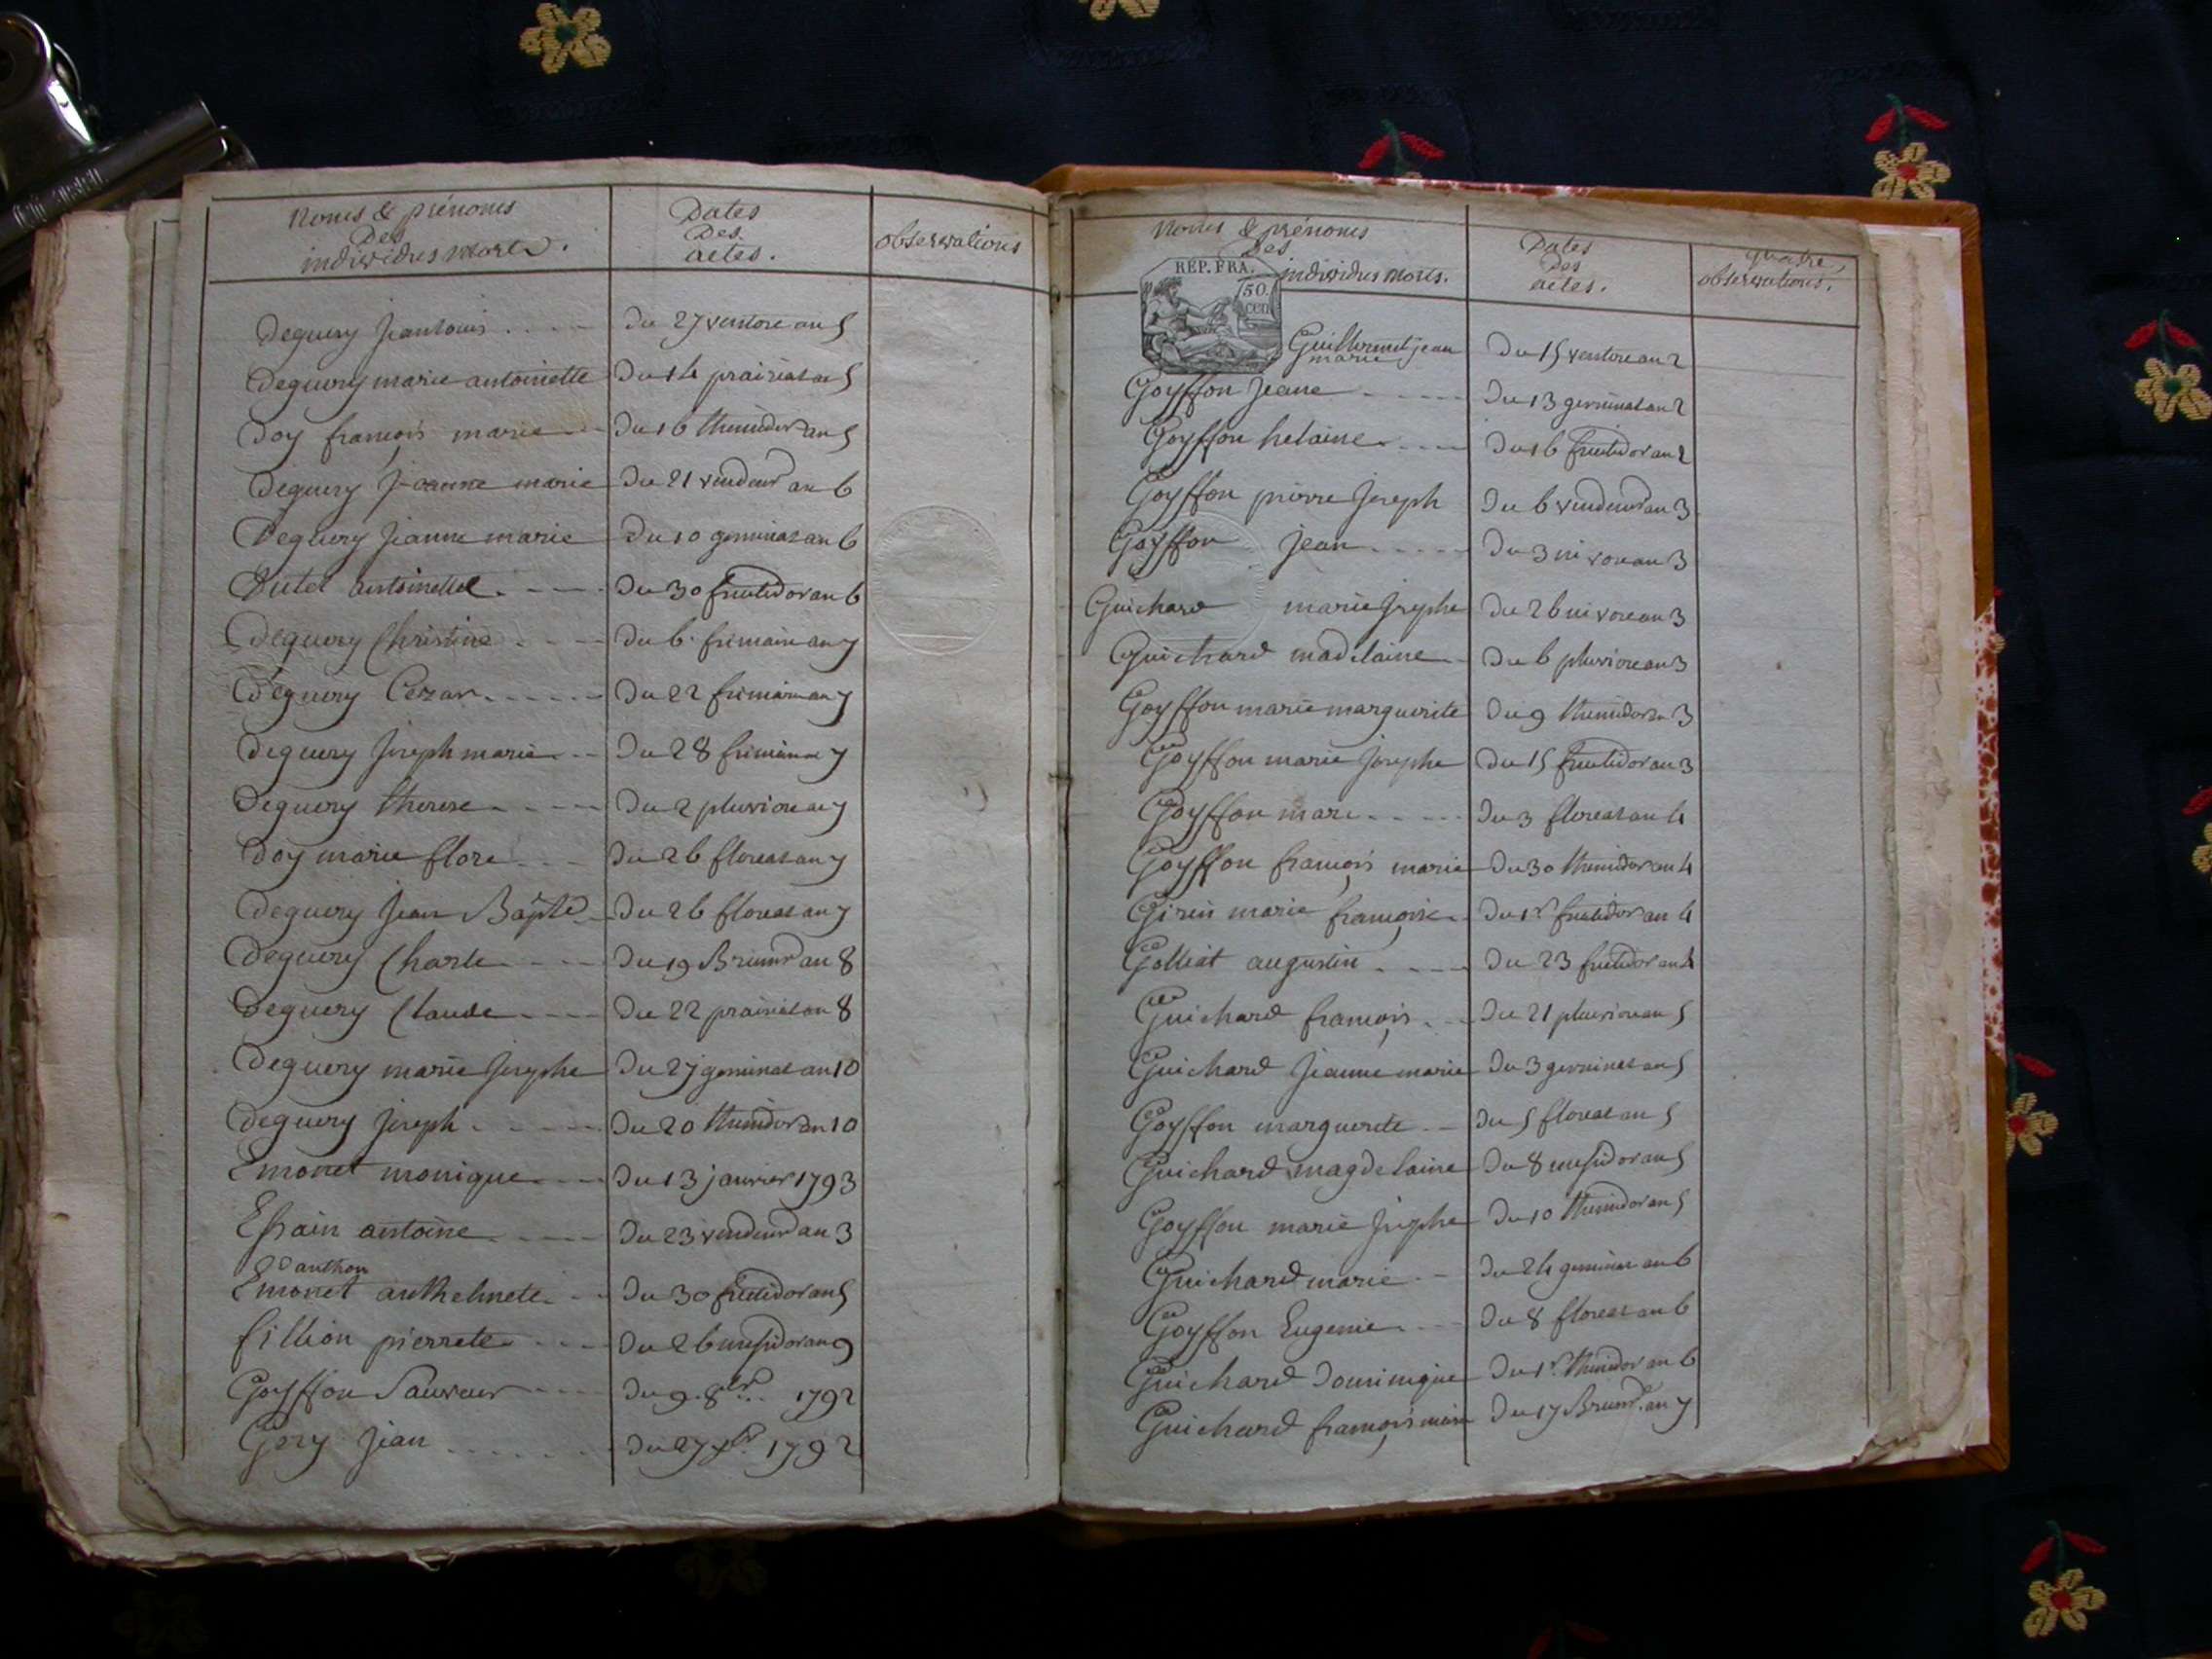 Noms & prénoms
Des
individus morts.
Dates
Des
actes.
observations
Deguery Jeanlouis . . . . Du 27 ventose an 5
Deguery marie antoinette Du 14 prairial an 5
Doy françois marie Du 16 thermidor an 5
Deguery Jeanne marie Du 21 vendemr an 6
Deguery Jeanne marie Du 10 germinal an 6
Dutel antoinette . - - - Du 30 fructidor an 6
Deguery Christine . . . Du 6 frimaire an 7
Deguery Cezar . - - - - Du 22 frimaire an 7
Deguery Joseph marie - - Du 28 frimaire 7
Deguery therese - - - - Du 2 pluviose an 7
Doy marie flore - - - Du 26 floreal an 7
Deguery Jean Bapte Du 26 floreal an 7
Deguery Charle - - - Du 19 Brumr an 8
Deguery Claude - - - - Du 22 prairial an 8
Deguery marie Josephe Du 27 germinal an 10
Deguery Joseph . - - - - Du 20 thermidor an 10
Emonet monique - - - Du 13 janvier 1793
Efrain antoine . - - - Du 23 vendemr an 3
d'anthon
Emonet anthelmete - - Du 30 fructidor an 5
fillion pierrete - - - Du 26 messidor an 9
Goyffon Sauveur - - - - Du 9. 8bre. 1792
Gery Jean . . . . . . Du 27 xbr. 1792
Noms & prénoms
Des
individus morts.
Dates
Des
actes.
observations.
REP. FRA.
50.
CEN
Guillermet jean
marie Du 15 ventose an 2
Goyffon Jeane . - - - - Du 13 germinal an 2
Goyffon helaine . - - - Du 16 fructidor an 2
Goyffon pierre Joseph Du 6 vendemr an 3
Goyffon Jean . - - - - Du 3 nivose an 3
Guichard marie Josephe Du 26 nivose an 3
Guichard madelaine - Du 6 pluviose an 3
Goyffon marie marguerite Du 9 thermidor an 3
Goyffon marie Josephe Du 15 fructidor an 3
Goyffon marc . - - - - Du 3 floreal an 4
Goyffon françois marie Du 30 thermidor an 4
Girin marie françoise . Du 1r fructidor an 4
Golliat augustin . - - - Du 23 fructidor an 4
Guichard françois . - - Du 21 pluviose an 5
Guichard Jeanne marie Du 3 germinal an 5
Goyffon marguerite - - Du 5 floreal an 5
Guichard magdelaine Du 8 messidor an 5
Goyffon marie Josephe Du 10 thermidor an 5
Guichard marie . - Du 24 germinal an 6
Goyffon Eugenie - - - Du 8 floreal an 6
Guichard Dominique Du 1r. thermidor an 6
Guichard françois marie Du 17 Brumr. an 7